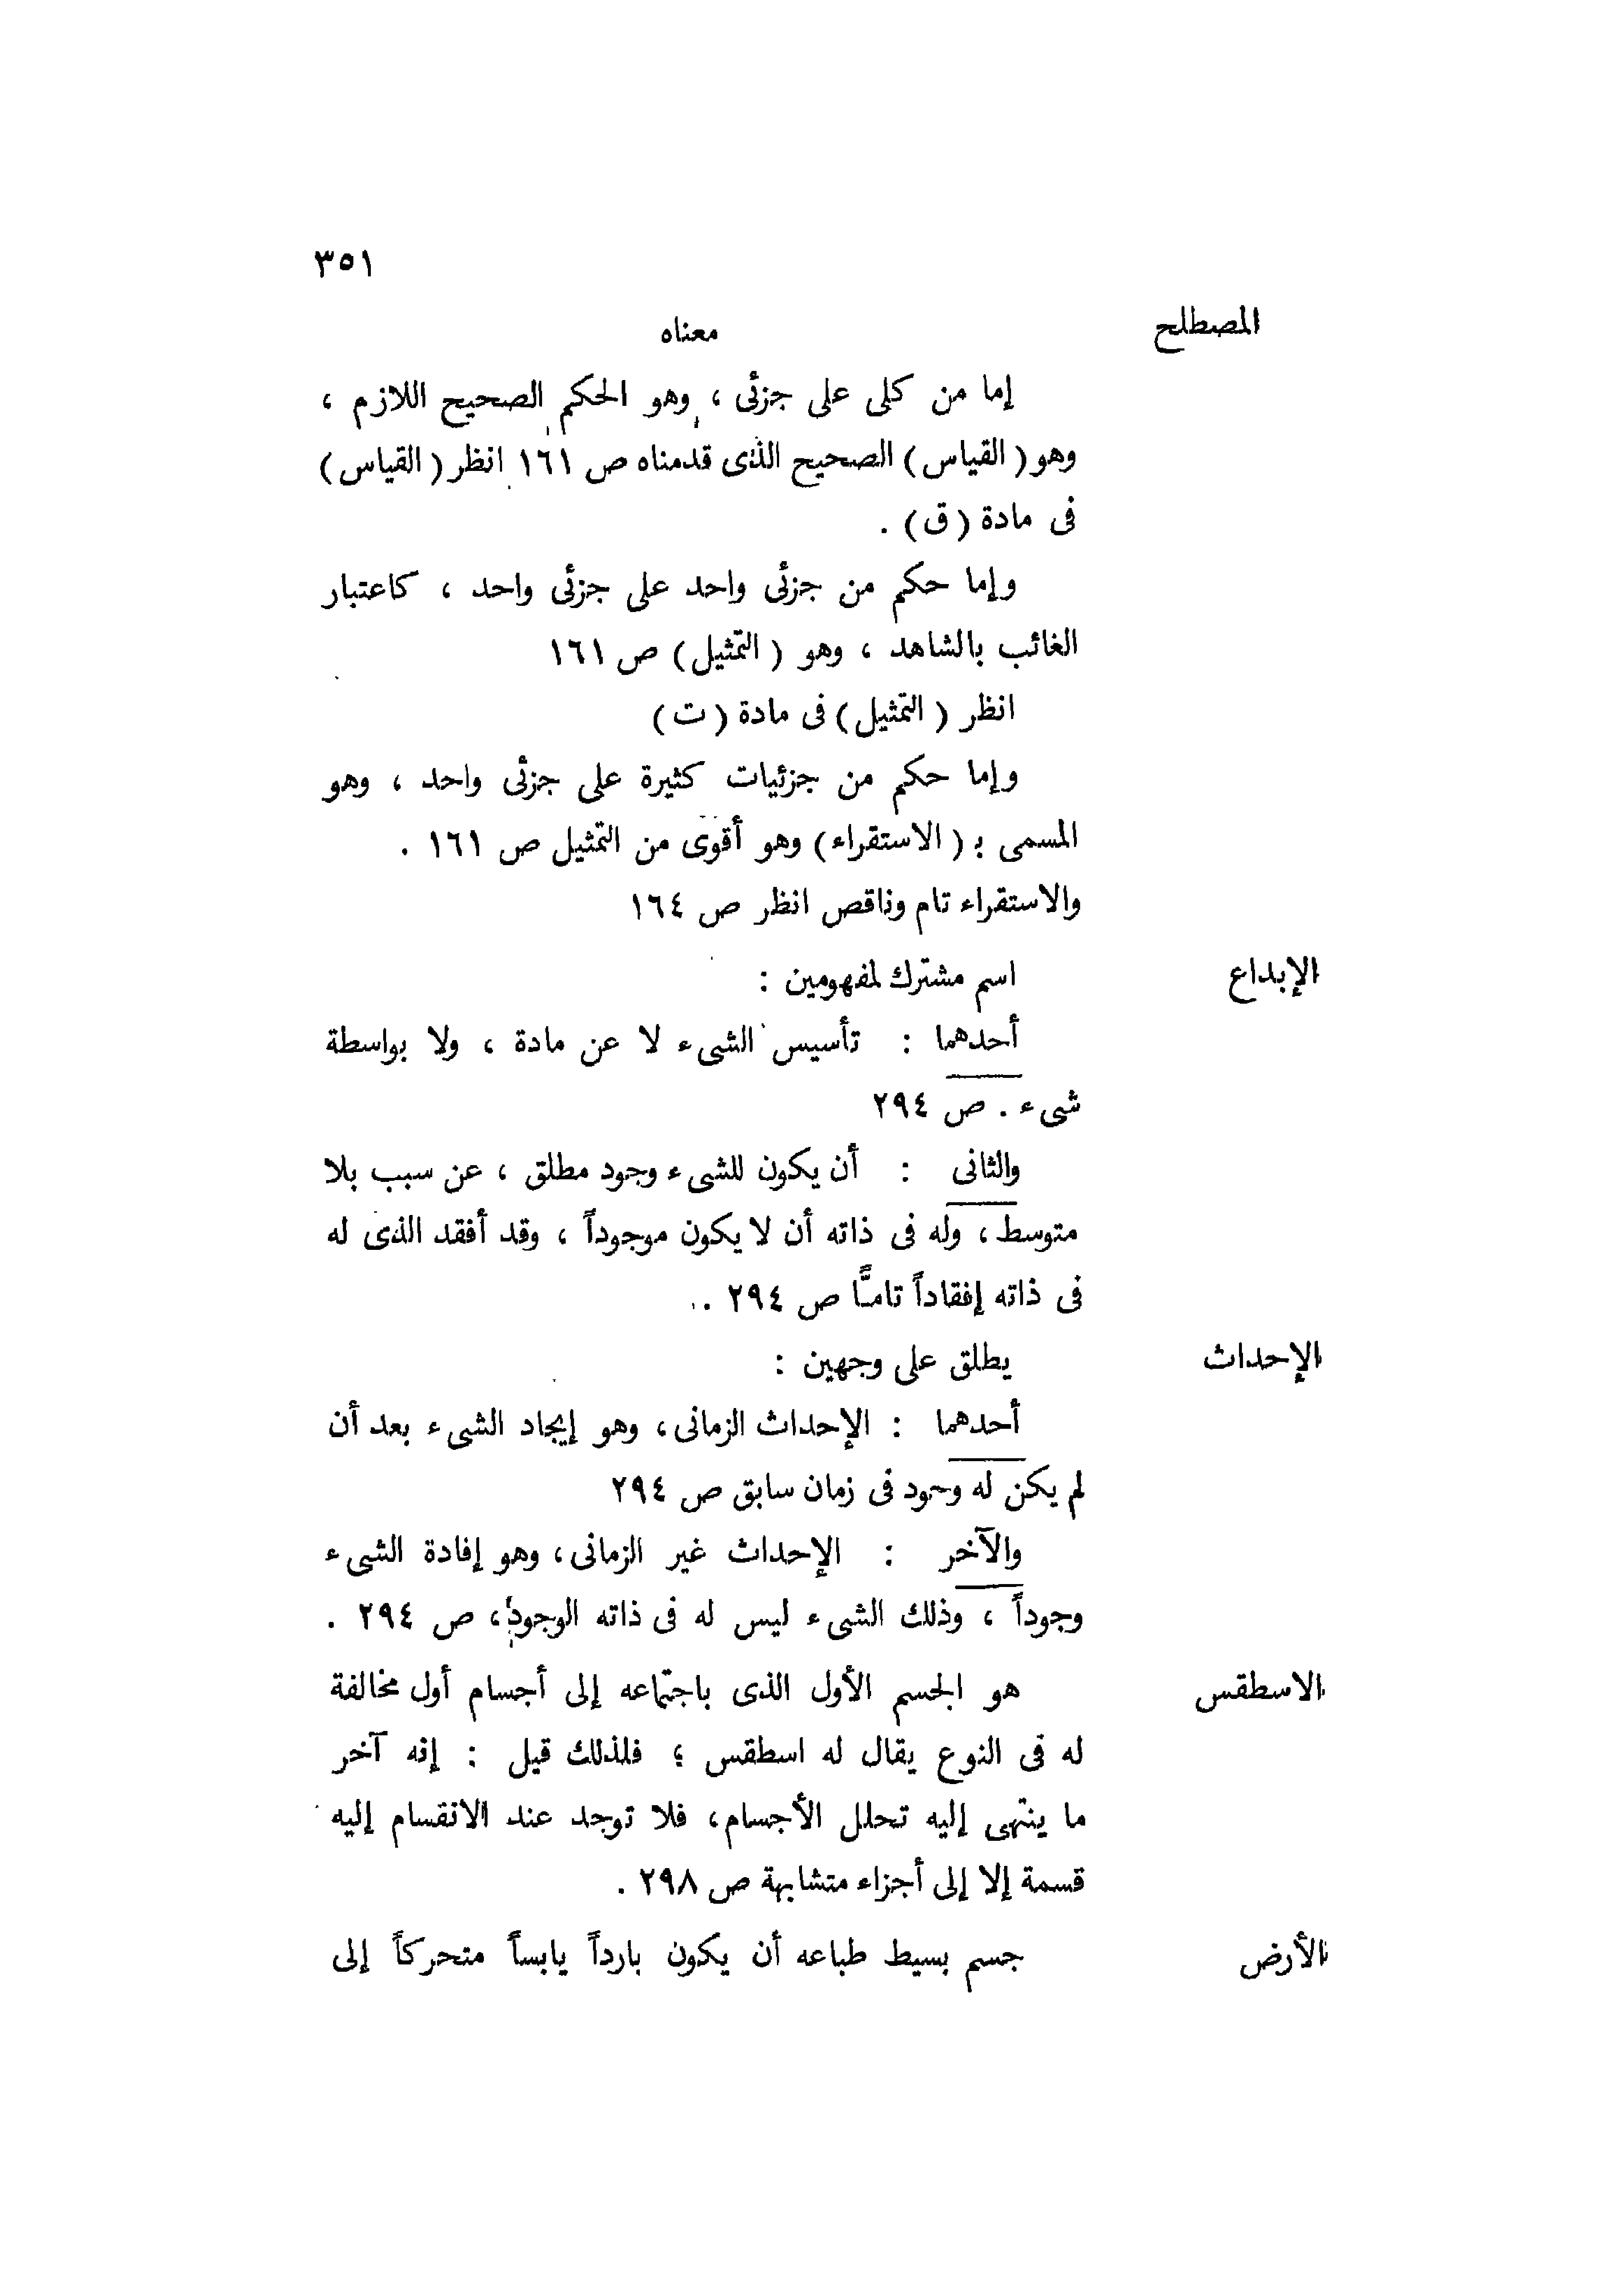 ٣٥١
المصطلح معناه
إما من كلى على جزئى ، وهو الحكم الصحيح اللازم ،
وهو ( القياس ) الصحيح الذى قدمناه ص ١٦١ انظر ( القياس )
فى مادة ( ق ) .
وإما حكم من جزئى واحد على جزئى واحد ، كاعتبار
الغائب بالشاهد ، وهو ( التمثيل ) ص ١٦١
انظر ( التمثيل ) فى مادة ( ت )
وإما حكم من جزئيات كثيرة على جزئى واحد ، وهو
المسمى بـ ( الاستقراء ) وهو أقوى من التمثيل ص ١٦١ .
والاستقراء تام وناقص انظر ص ١٦٤
الإبداع اسم مشترك لمفهومين :
أحدهما : تأسيس الشىء لا عن مادة ، ولا بواسطة
شىء . ص ٢٩٤
والثانى : أن يكون للشىء وجود مطلق ، عن سبب بلا
متوسط ، وله فى ذاته أن لا يكون موجوداً ، وقد أفقد الذى له
فى ذاته إفقاداً تامًّا ص ٢٩٤ .
الإحداث يطلق على وجهين :
أحدهما : الإحداث الزمانى ، وهو إيجاد الشىء بعد أن
لم يكن له وجود فى زمان سابق ص ٢٩٤
والآخر : الإحداث غير الزمانى ، وهو إفادة الشىء
وجوداً ، وذلك الشىء ليس له فى ذاته الوجود ، ص ٢٩٤ .
الاسطقس هو الجسم الأول الذى باجتماعه إلى أجسام أول مخالفة
له فى النوع يقال له اسطقس ؛ فلذلك قيل : إنه آخر
ما ينتهى إليه تحلل الأجسام ، فلا توجد عند الانقسام إليه
قسمة إلا إلى أجزاء متشابهة ص ٢٩٨ .
الأرض جسم بسيط طباعه أن يكون بارداً يابساً متحركاً إلى